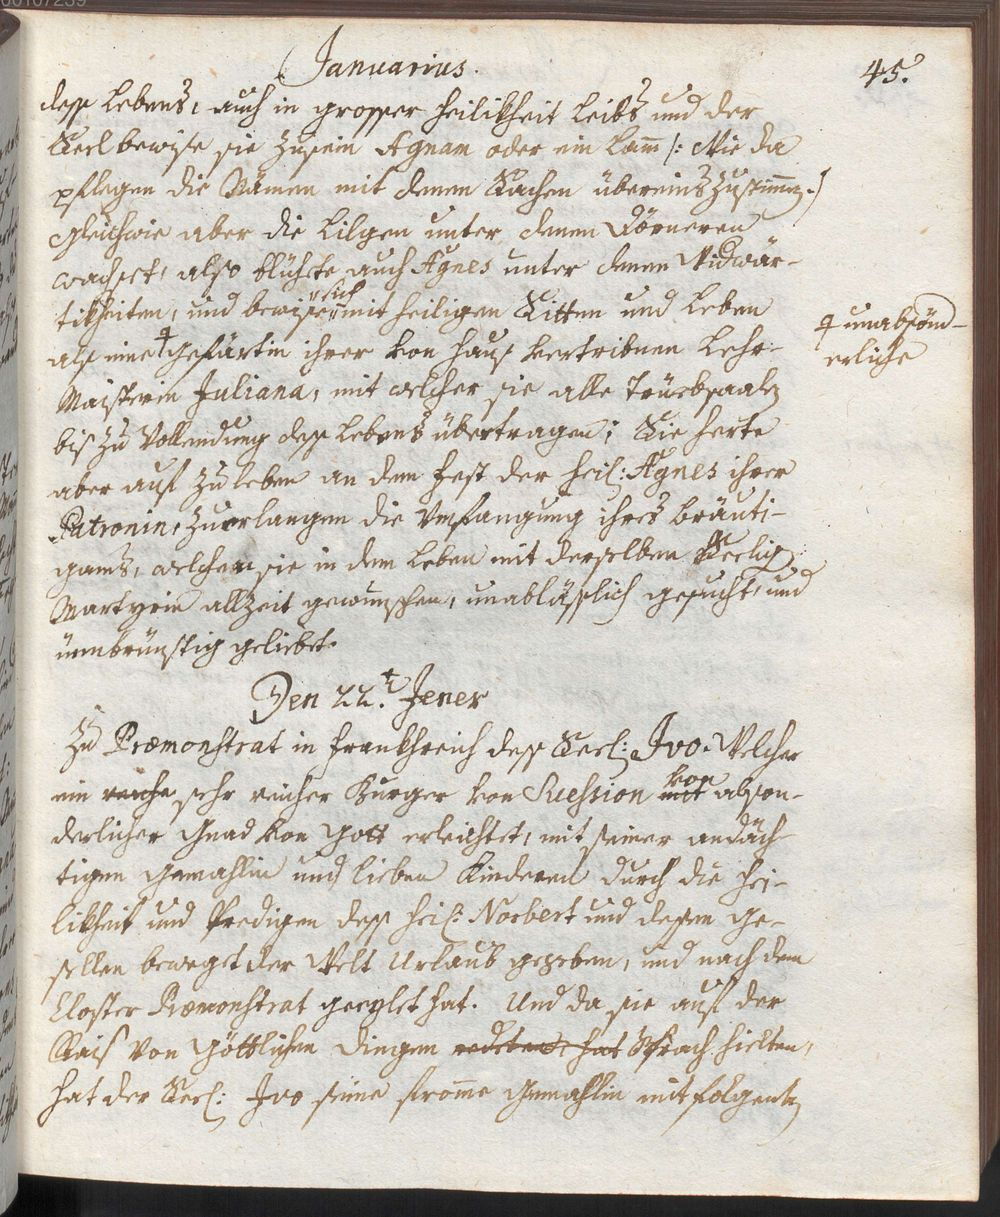 00107239
Januarius
45.
dess Lebens, auch in grosser Heilikheit Leibs und der
Seel bewise sie zusein Agnam oder ein Lamm /: Wie da
pflegen die Nämen mit denen Sachen übereinszustimmen :/
Gleichwie aber die Lilgen unter denen Dörneren
wachset, also blühete auch Agnes unter denen Widwär-
tikheiten, und mit heiligen Sitten und Leben
als eine Gefärtin ihrer von Hauss vertribnen Lehr-
Maisterin Juliana, mit welcher sie alle Trüebsaalen
bis zu Vollendung dess Lebens übertragen; Sie herte
aber auf zu leben an dem Fest der heil: Agnes ihrer
Patronin, zuerlangen die Umfangung ihres Bräuti-
gams, welchen sie in dem Leben mit derselben Seelig:
Martyrin allzeit gewunschen, unablässlich gesucht, und
innbrünstig geliebet.
unabsönd-
erliche
Den 22.t Jener
Zu Præmonstrat in Frankhreich dess Seel: Ivo. Welcher
ein reiche sehr reicher Burger von Suession mit von abson-
derlicher Gnad von Gott erleichtet, mit seiner andäch-
tigen Gemahlin und lieben Kinderen durch die Hei-
likheit und Predigen dess heil: Norbert und dessen Ge-
sellen beweget der Welt Urlaub gegeben, und nach dem
Closter Præmonstrat geeylet hat. Und da sie auf der
Rais von Göttlichen Dingen hat Sprach hielten,
hat der Seel: Ivo seine fromme Gemahlin mit folgenten